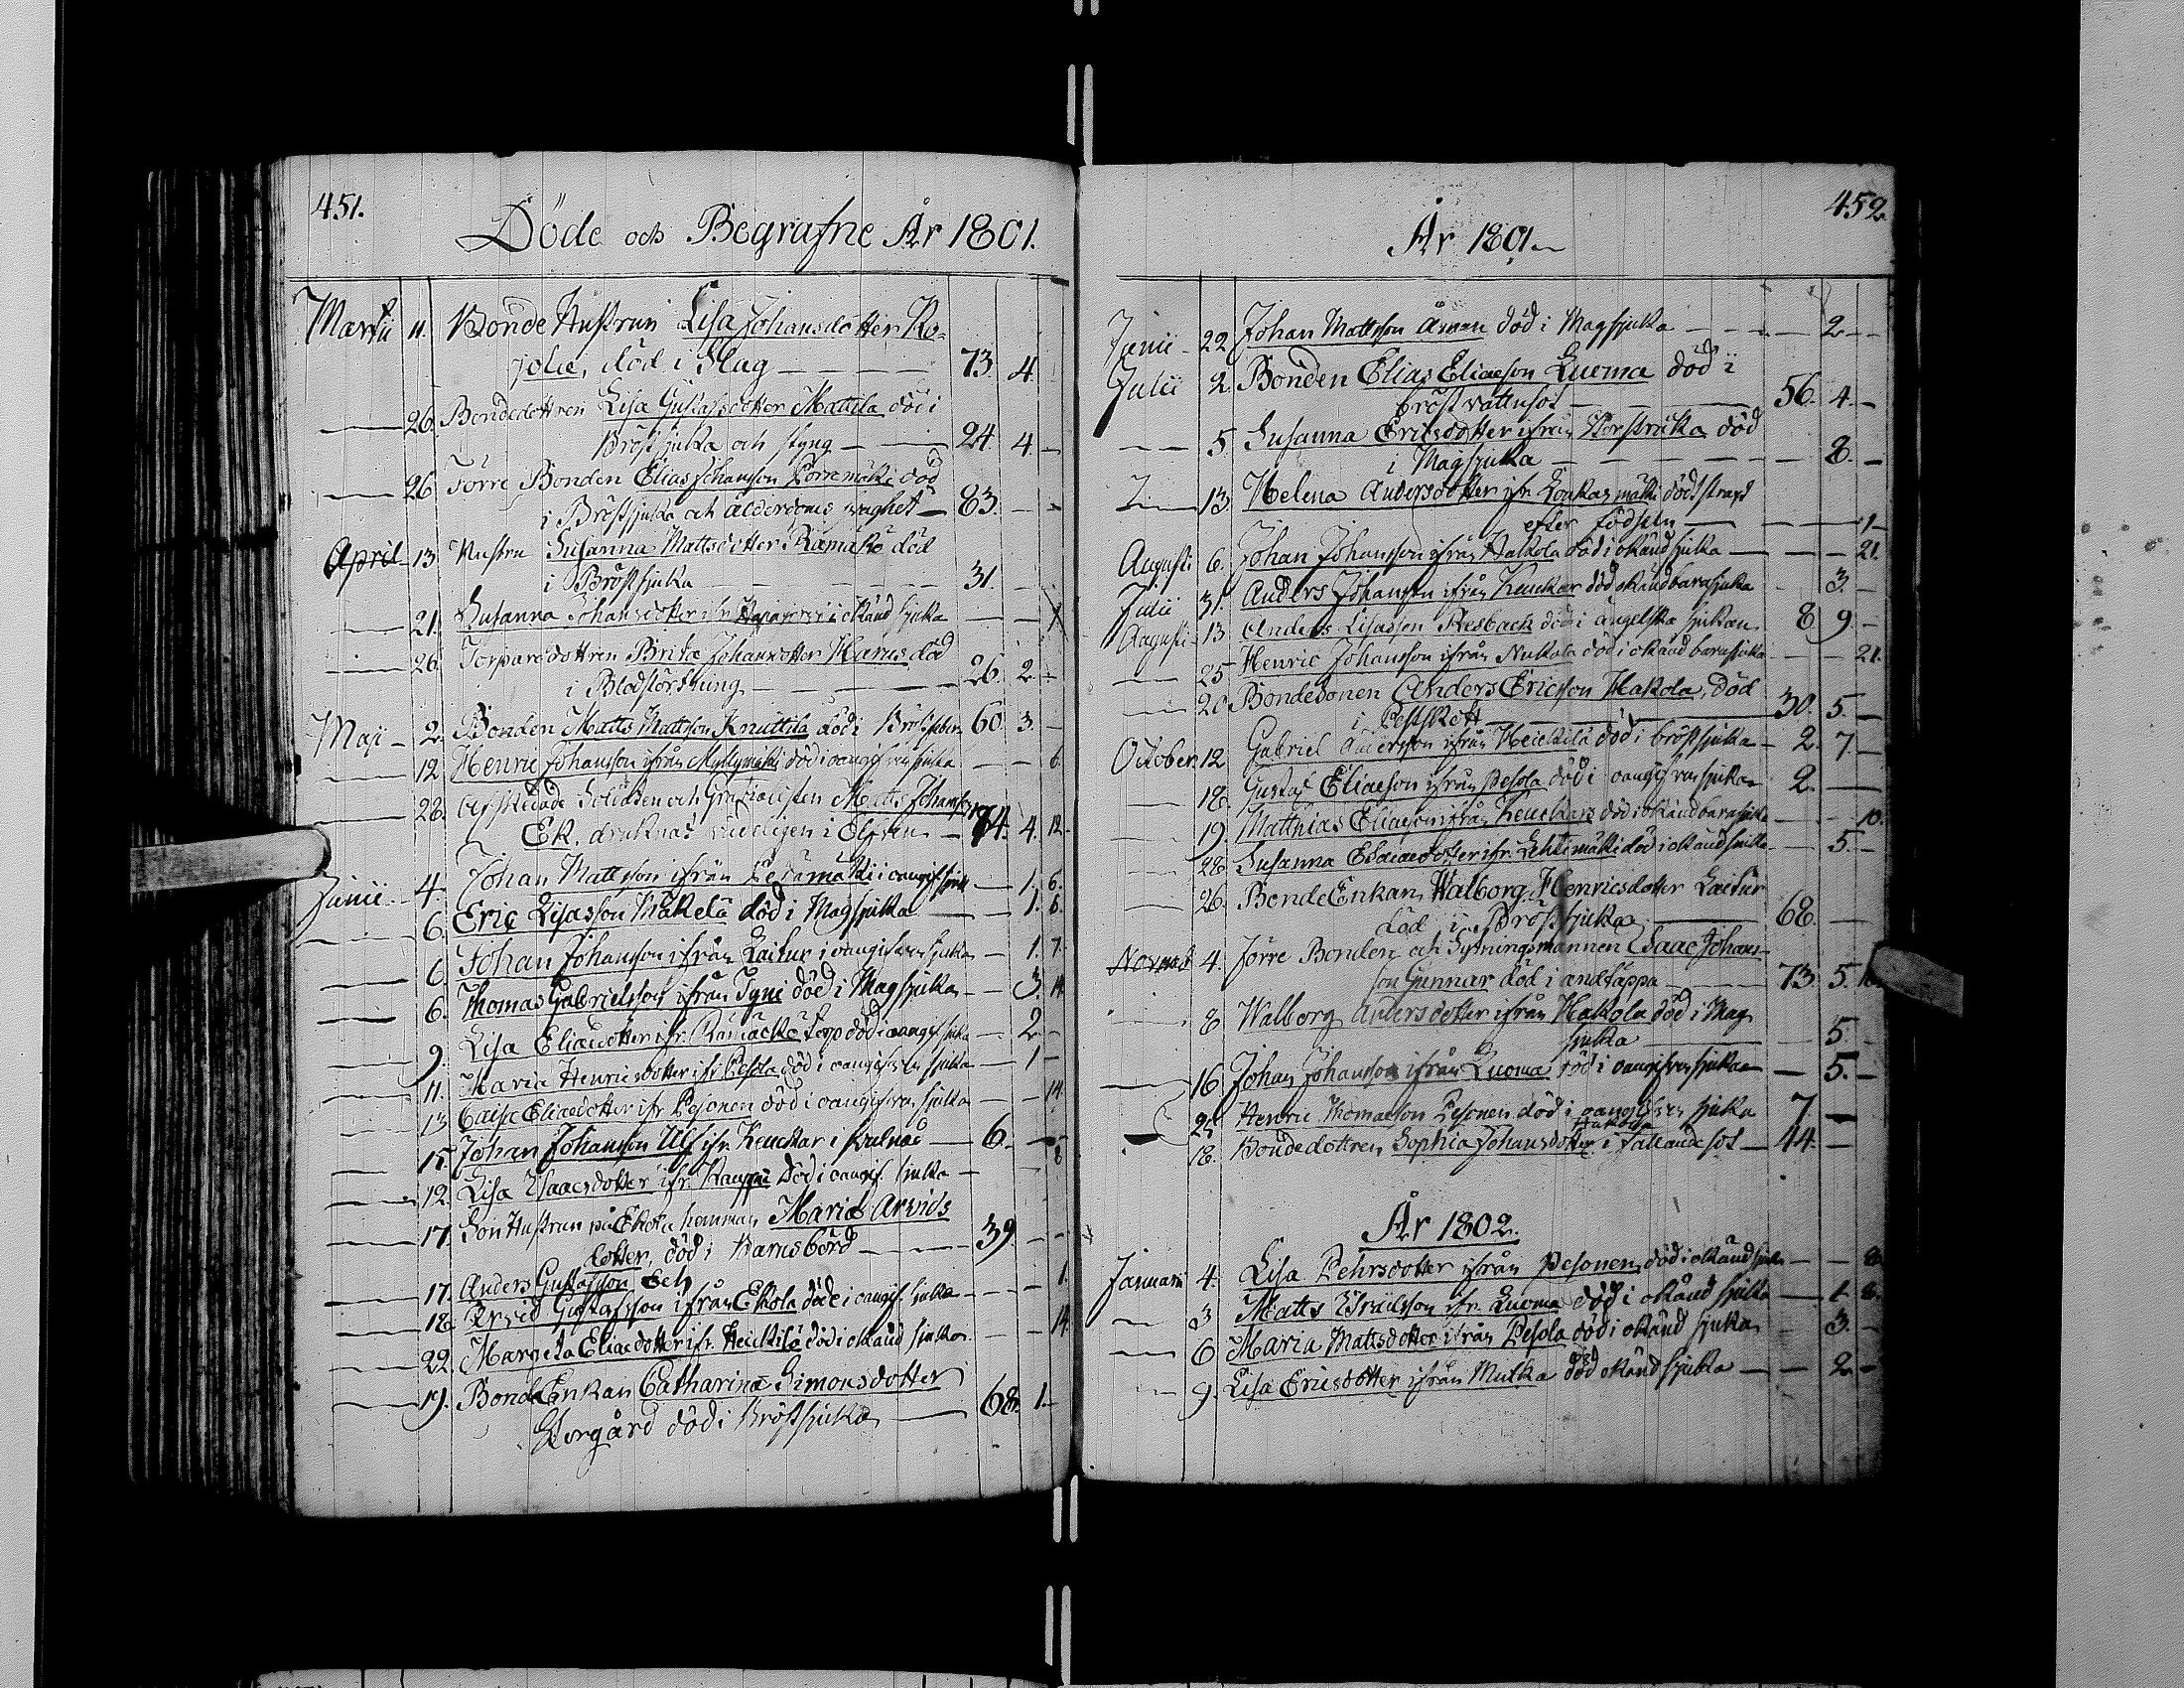 451.
Döde och Begrafne År 1801.
Martii 11. Bonde Hustrun Lisa Johansdotter Ko-
jola, död i Slag — 73. 4.
— 26. Bondedottren Lisa Gustafsdotter Mattila död i
Bröstsjuka och styng — 24. 4. —
— 26. Förre Bonden Elias Johansson Porremäki död
i Bröstsjuka och ålderdoms svaghet — 83. —
April 13. Hustru Susanna Mattsdotter Rämäkö död
i Bröstsjuka — 31. —
— 21. Susanna Johansdotter ifr. i okänd sjuka —
— 26. Torparedottren Brita Johansdotter Harus död
i Blodstörtning — 26. 2. —
Maji — 2. Bonden Matts Mattsson Knuttila död i Bröstfeber 60. 3. —
— 12. Henric Johansson ifrån Myllymäki död i oangifven sjuka — 6.
— 28. Afskedade Soldaten och Gratialisten Matts Johansson
Ek, druknad i Elfven — 74. 4. 12.
Junii — 4. Johan Mattsson ifrån Perämäki i oangif. sjuk — 1. 6.
— 6. Eric Lisasson Mäkelä död i Magsjuka — 1. 6.
— 6. Johan Johansson ifrån Laitur i oangifven sjuka — 1. 7.
— 6. Thomas Gabrielsson ifrån Tyni död i Magsjuka — 3. 14.
— 9. Lisa Eliaedotter ifr. Rämäckö torp död i oangif. sjuka — 2 —
— 11. Maria Henricsdotter ifr. Pesola död i oangifven sjuka — 1 —
— 13 Caisa Eliaedotter ifr Pesonen död i oangifven sjuka — 14.
— 15. Johan Johansson Ulf ifr. Keuckar i — 6. —
— 12. Lisa Isaacsdotter ifr. Kauppi död i oangif. sjuka — 8
— 17. Son Hustrun på Ekola hemman Maria Arvids
dotter, död i Barnsbörd — 39. —
— 17. Anders Gustafsson och — 1.
— 18. Arvid Gustafsson ifrån Ekola döde i oangif. sjuka —
— 22. Margeta Eliaedotter ifr. Heickilä död i okänd sjuka. — 14.
— 19. Bonde Enkan Catharina Simonsdotter
Storgård död i Bröstsjuka — 68. 1. —
452
År 1801. —
Junii — 22. Johan Mattsson Åman död i Magsjuka — 2 —
Julii 2. Bonden Elias Eliaeson Luoma död i
bröst vattusot — 56. 4. —
— 5. Susanna Ericsdotter ifrån Storstricka död
i Magsjuka — 8. —
— 13. Helena Andersdotter ifr Loukasmäki död strax
efter födseln — 1 —
Augusti 6. Johan Johansson ifrån Hakola död i okänd sjuka — 21.
Julii 31. Anders Johansson ifrån Keuckar död okänd barasjuka — 3. —
Augusti — 13. Anders Lisasson Resback död i angelska sjukan 8 9. —
— 25 Henric Johansson ifrån Nukala död i okänd barasjuka — 21.
— 20 Bondesonen Anders Ericsson Hakola, död
i — 30. 5. —
October 12 Gabriel Andersson ifrån Heickilä död i bröstsjuka — 2. 7. —
— 18. Gustaf Eliaeson ifrån Pesola död i oangifven sjuka 2. —
— 19. Matthias Eliaeson ifrån Keuckars död i okänd barasjuka — 10.
— 28 Susanna Esaiaedotter ifr. Lehtimäki död i okänd sjuka — 5. —
— 26. Bonde Enkan Walborg Henricsdotter Laitur
död i Bröstsjuka — 68. —
4. Förre Bonden och Sytningsmannen Isaac Johans-
son Gunnar död i andtäppa — 73. 5.
— 8 Walborg Andersdotter ifrån Hakola död i Mag
sjuka — 5. —
— 16 Johan Johansson ifrån Luoma, död i oangifven sjukan — 5. —
— 25 Henric Thomaeson Pesonen död i oangifven sjuka 7 —
— 18. Bondedottren Sophia Johansdotter i fallandesot — 44. —
År 1802.
Januarii 4. Lisa Pehrsdotter ifrån Pesonen, död i okänd sjuka — 8
— 3 Matts ifr. Luoma död i okänd sjuka — 1 8.
— 6 Maria Mattsdotter ifrån Pesola död i okänd sjuka — 3. —
— 9. Lisa Ericsdotter ifrån Mulka död okänd sjuka — 2 —